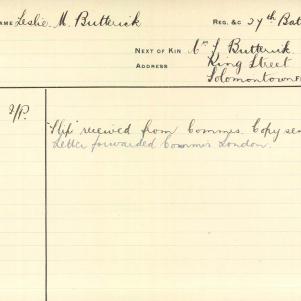 NAME Leslie M Butterick REG. &C 27th Bat
NEXT OF KIN Mrs L Butterick
ADDRESS King Street
Solomontown
Y/P.
"Slip" received from Commis. Copy sen
Letter forwarded Commis London.